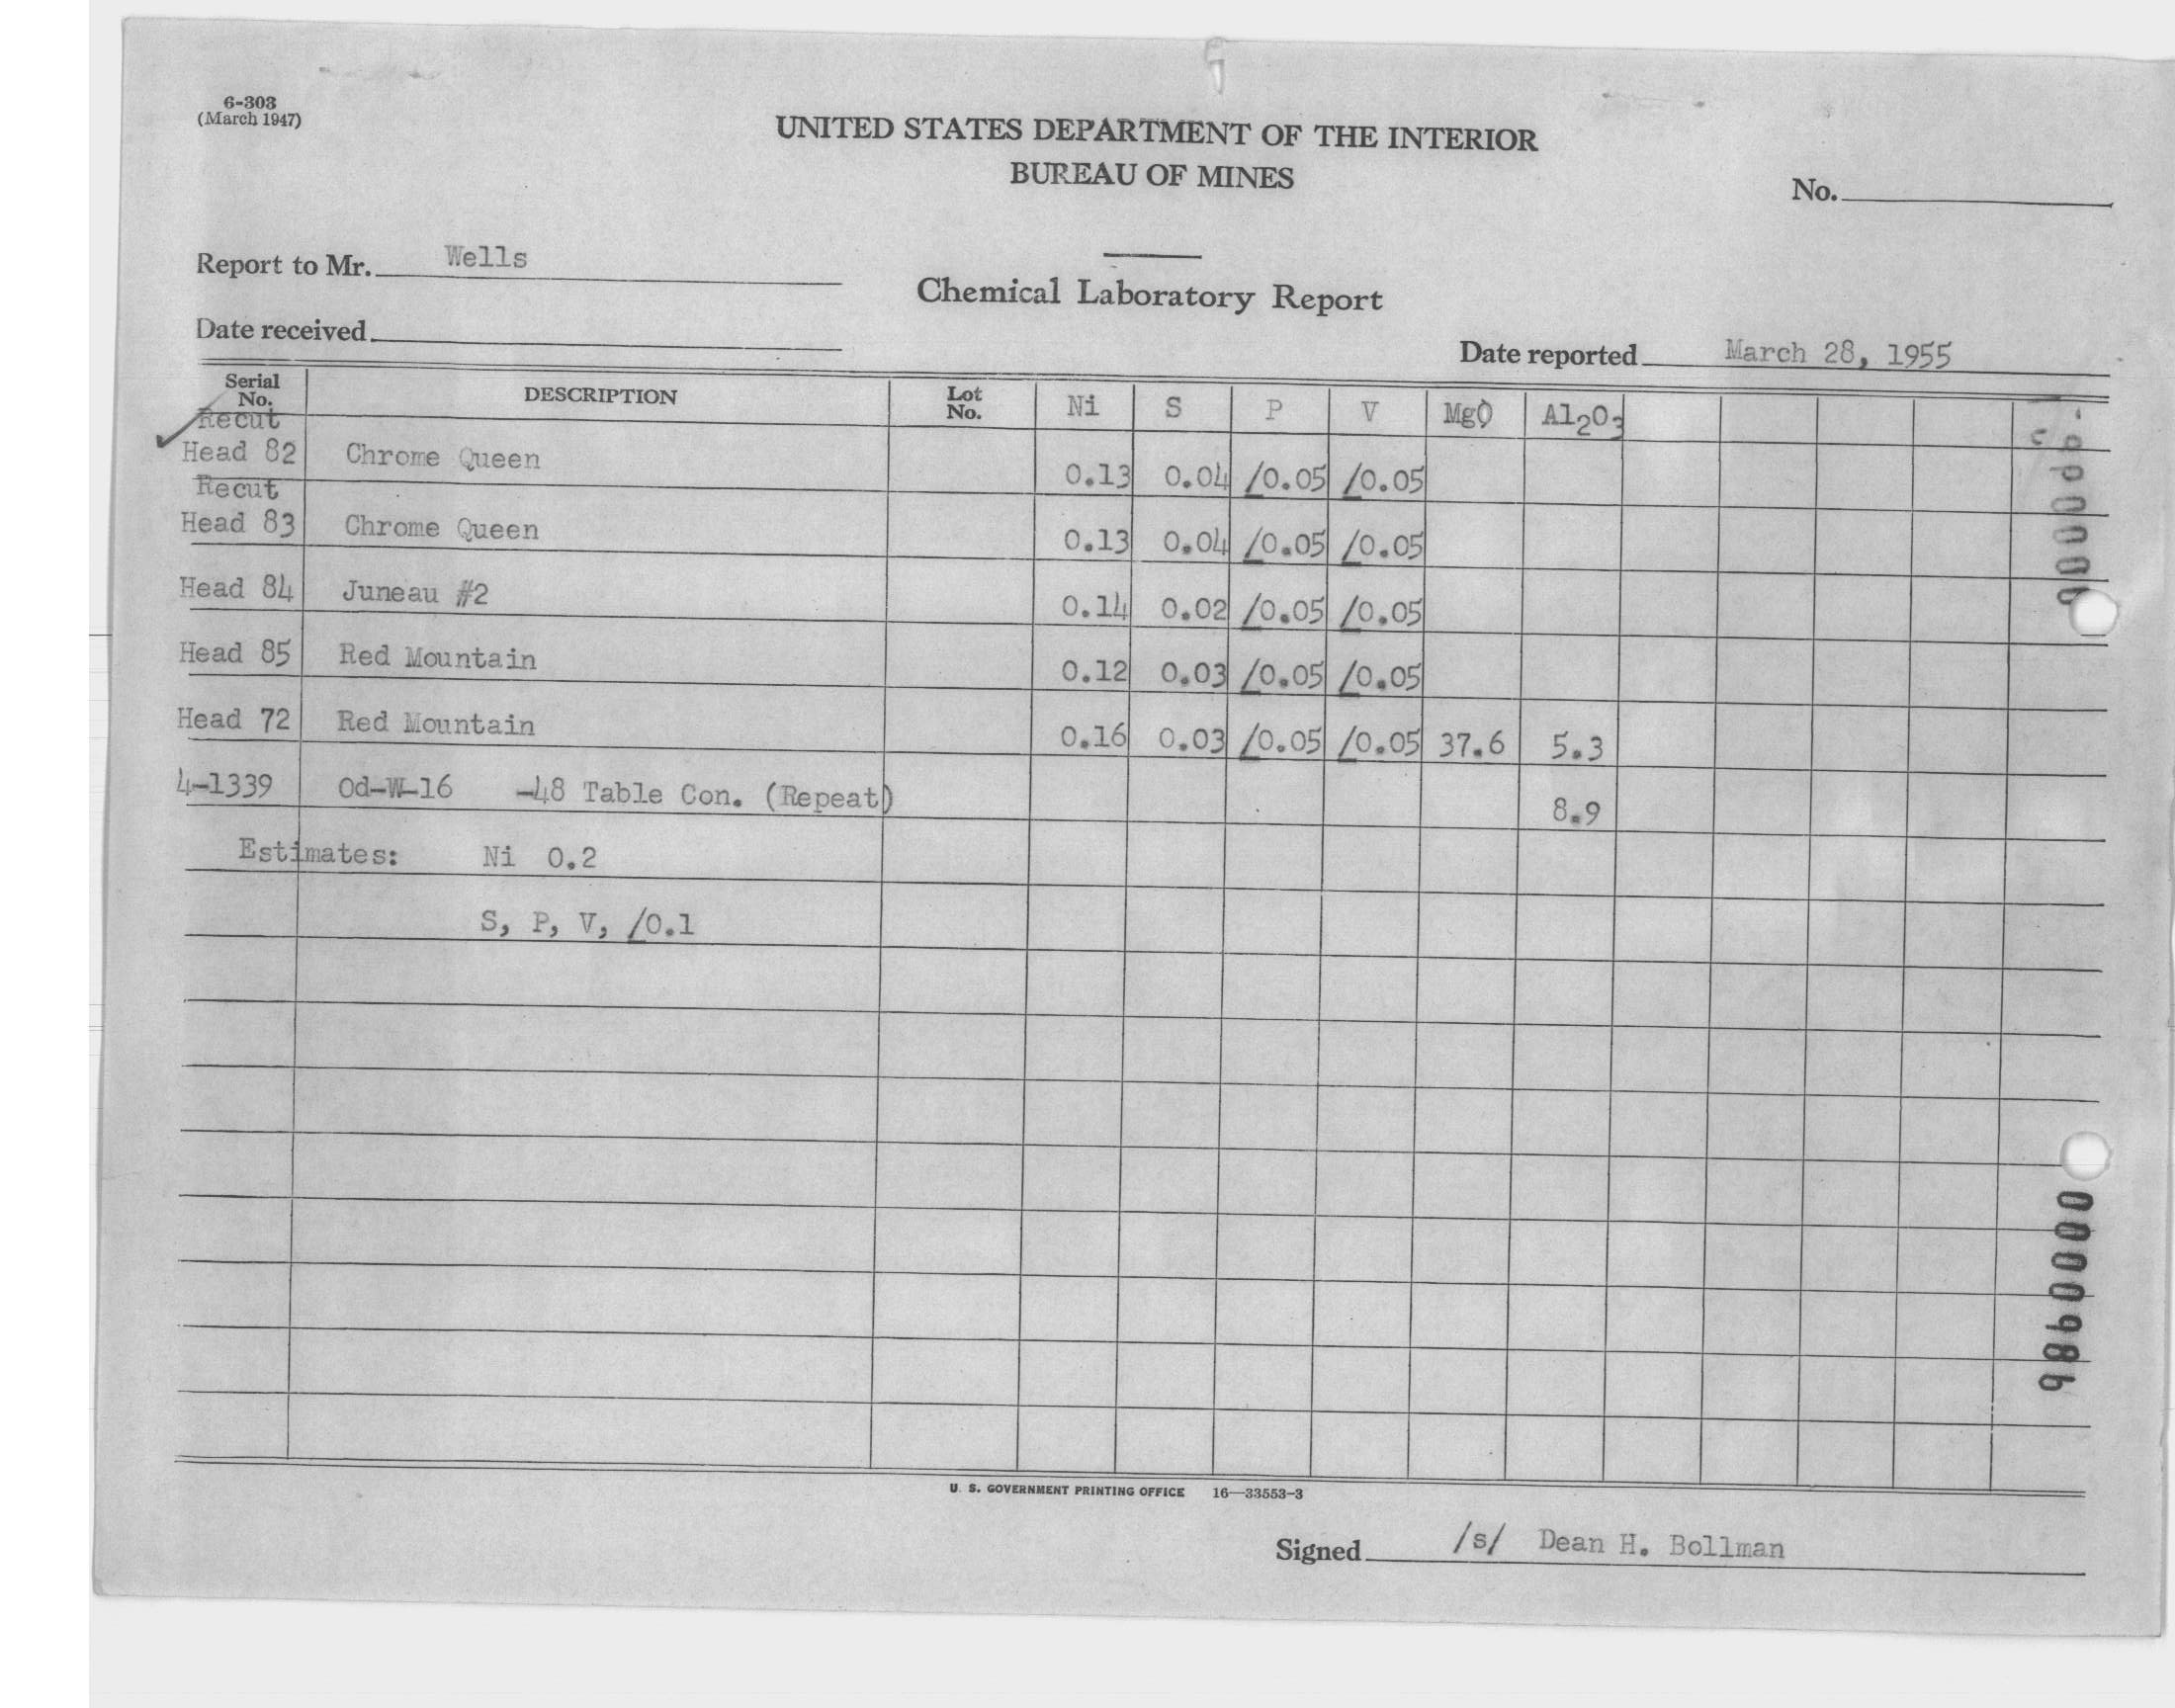 6-303
(March 1947)
UNITED STATES DEPARTMENT OF THE INTERIOR
BUREAU OF MINES
No.
Report to Mr. Wells
Chemical Laboratory Report
Date received
Date reported March 28, 1955
Serial No. DESCRIPTION Lot No. Ni S P V MgO Al2O3
Recut
Head 82 Chrome Queen 0.13 0.04 /0.05 /0.05
Recut
Head 83 Chrome Queen 0.13 0.04 /0.05 /0.05
Head 84 Juneau #2 0.14 0.02 /0.05 /0.05
Head 85 Red Mountain 0.12 0.03 /0.05 /0.05
Head 72 Red Mountain 0.16 0.03 /0.05 /0.05 37.6 5.3
4-1339 Od-W-16 -48 Table Con. (Repeat) 8.9
Estimates: Ni 0.2
S, P, V, /0.1
0000986
U. S. GOVERNMENT PRINTING OFFICE 16—33553-3
Signed /s/ Dean H. Bollman